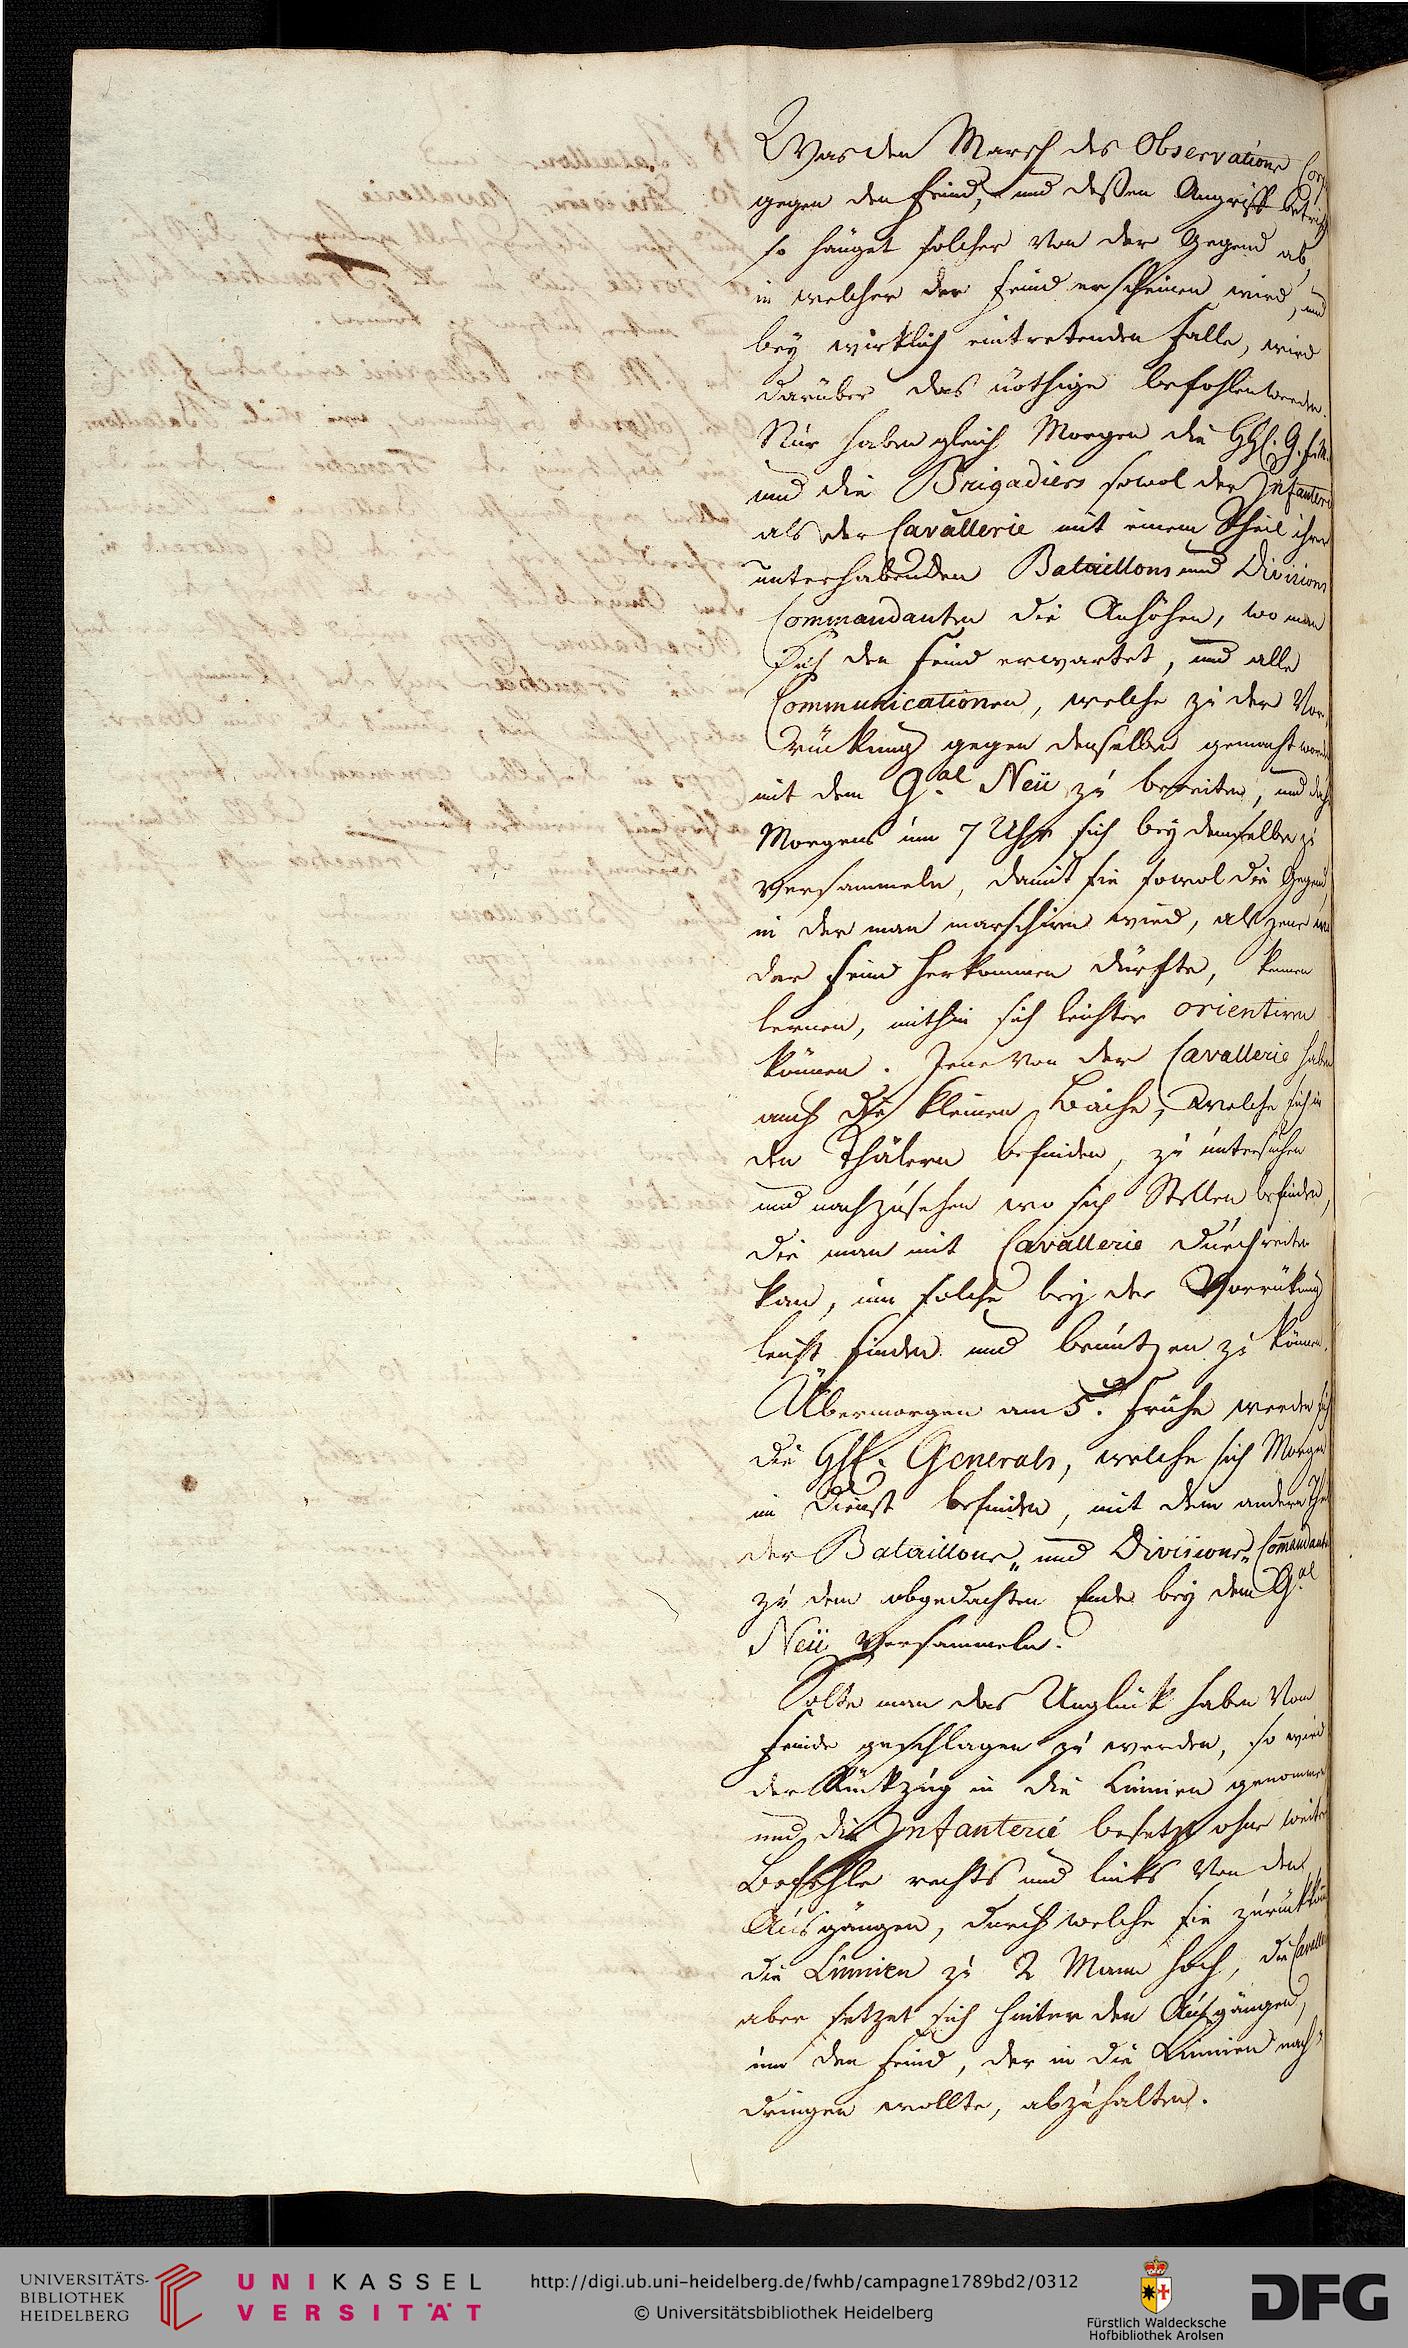 Was den Marsch des Observations Corps
gegen den Feind, und deßen Angriff betrift
so hänget solcher von der Gegend ab,
in welcher der Feind erscheinen wird, und
bey wirklich eintretenden Falle, wird
darüber das nöthige befohlen werden.
Nur haben gleich Morgen die HH. G. F. M.
und die Brigadiers sowol der Infanterie
als der Cavallerie mit einem Theil ihrer
unterhabenden Bataillons und Divisions
Commandanten die Anhöhen, wo man
sich den Feind erwartet, und alle
Communicationen, welche zu der Vor,
rückung gegen denselben gemacht worden
mit dem G.al Neü zu bereiten, und daher
Morgens um 7 Uhr sich bey demselben zu
versammeln, damit sie sowol die Gegend
in der man marschiren wird, als jene wo
der Feind herkommen dürfte, kennen
lernen, mithin sich leichter orientiren
können. Jene von der Cavallerie haben
auch die kleinen Bäche, welche sich in
den Thälern befinden, zu untersuchen
und nachzusehen wo sich Stellen befinden,
die man mit Cavallerie durchreiten
kan, um solche bey der Vorrükung
leicht finden und benutzen zu können.
Übermorgen am 5.t Frühe werden sich
die HH. Generals, welche sich Morgen
im Dienst befinden, mit dem andern Theil
der Bataillons„ und Divisions„ Com̄andanten
zu dem obgedachten Ende bey dem G.al
Neü versammeln.
Solte man das Unglück haben vom
Feinde geschlagen zu werden, so wird
der Rückzug in die Linnien genommen
und die Infanterie besetzt ohne weitere
Befehle rechts und links von den
Ausgängen, durch welche sie zurükkom̄t
die Linnien zu 2 Mann hoch, die Cavallerie
aber setzet sich hinter den Ausgängen,
um den Feind, der in die Linnien nach„
dringen wollte, abzuhalten.
UNIVERSITÄTS-
BIBLIOTHEK
HEIDELBERG
UNIKASSEL
VERSITÄT
http://digi.ub.uni-heidelberg.de/fwhb/campagne1789bd2/0312
© Universitätsbibliothek Heidelberg
Fürstlich Waldecksche
Hofbibliothek Arolsen
DFG